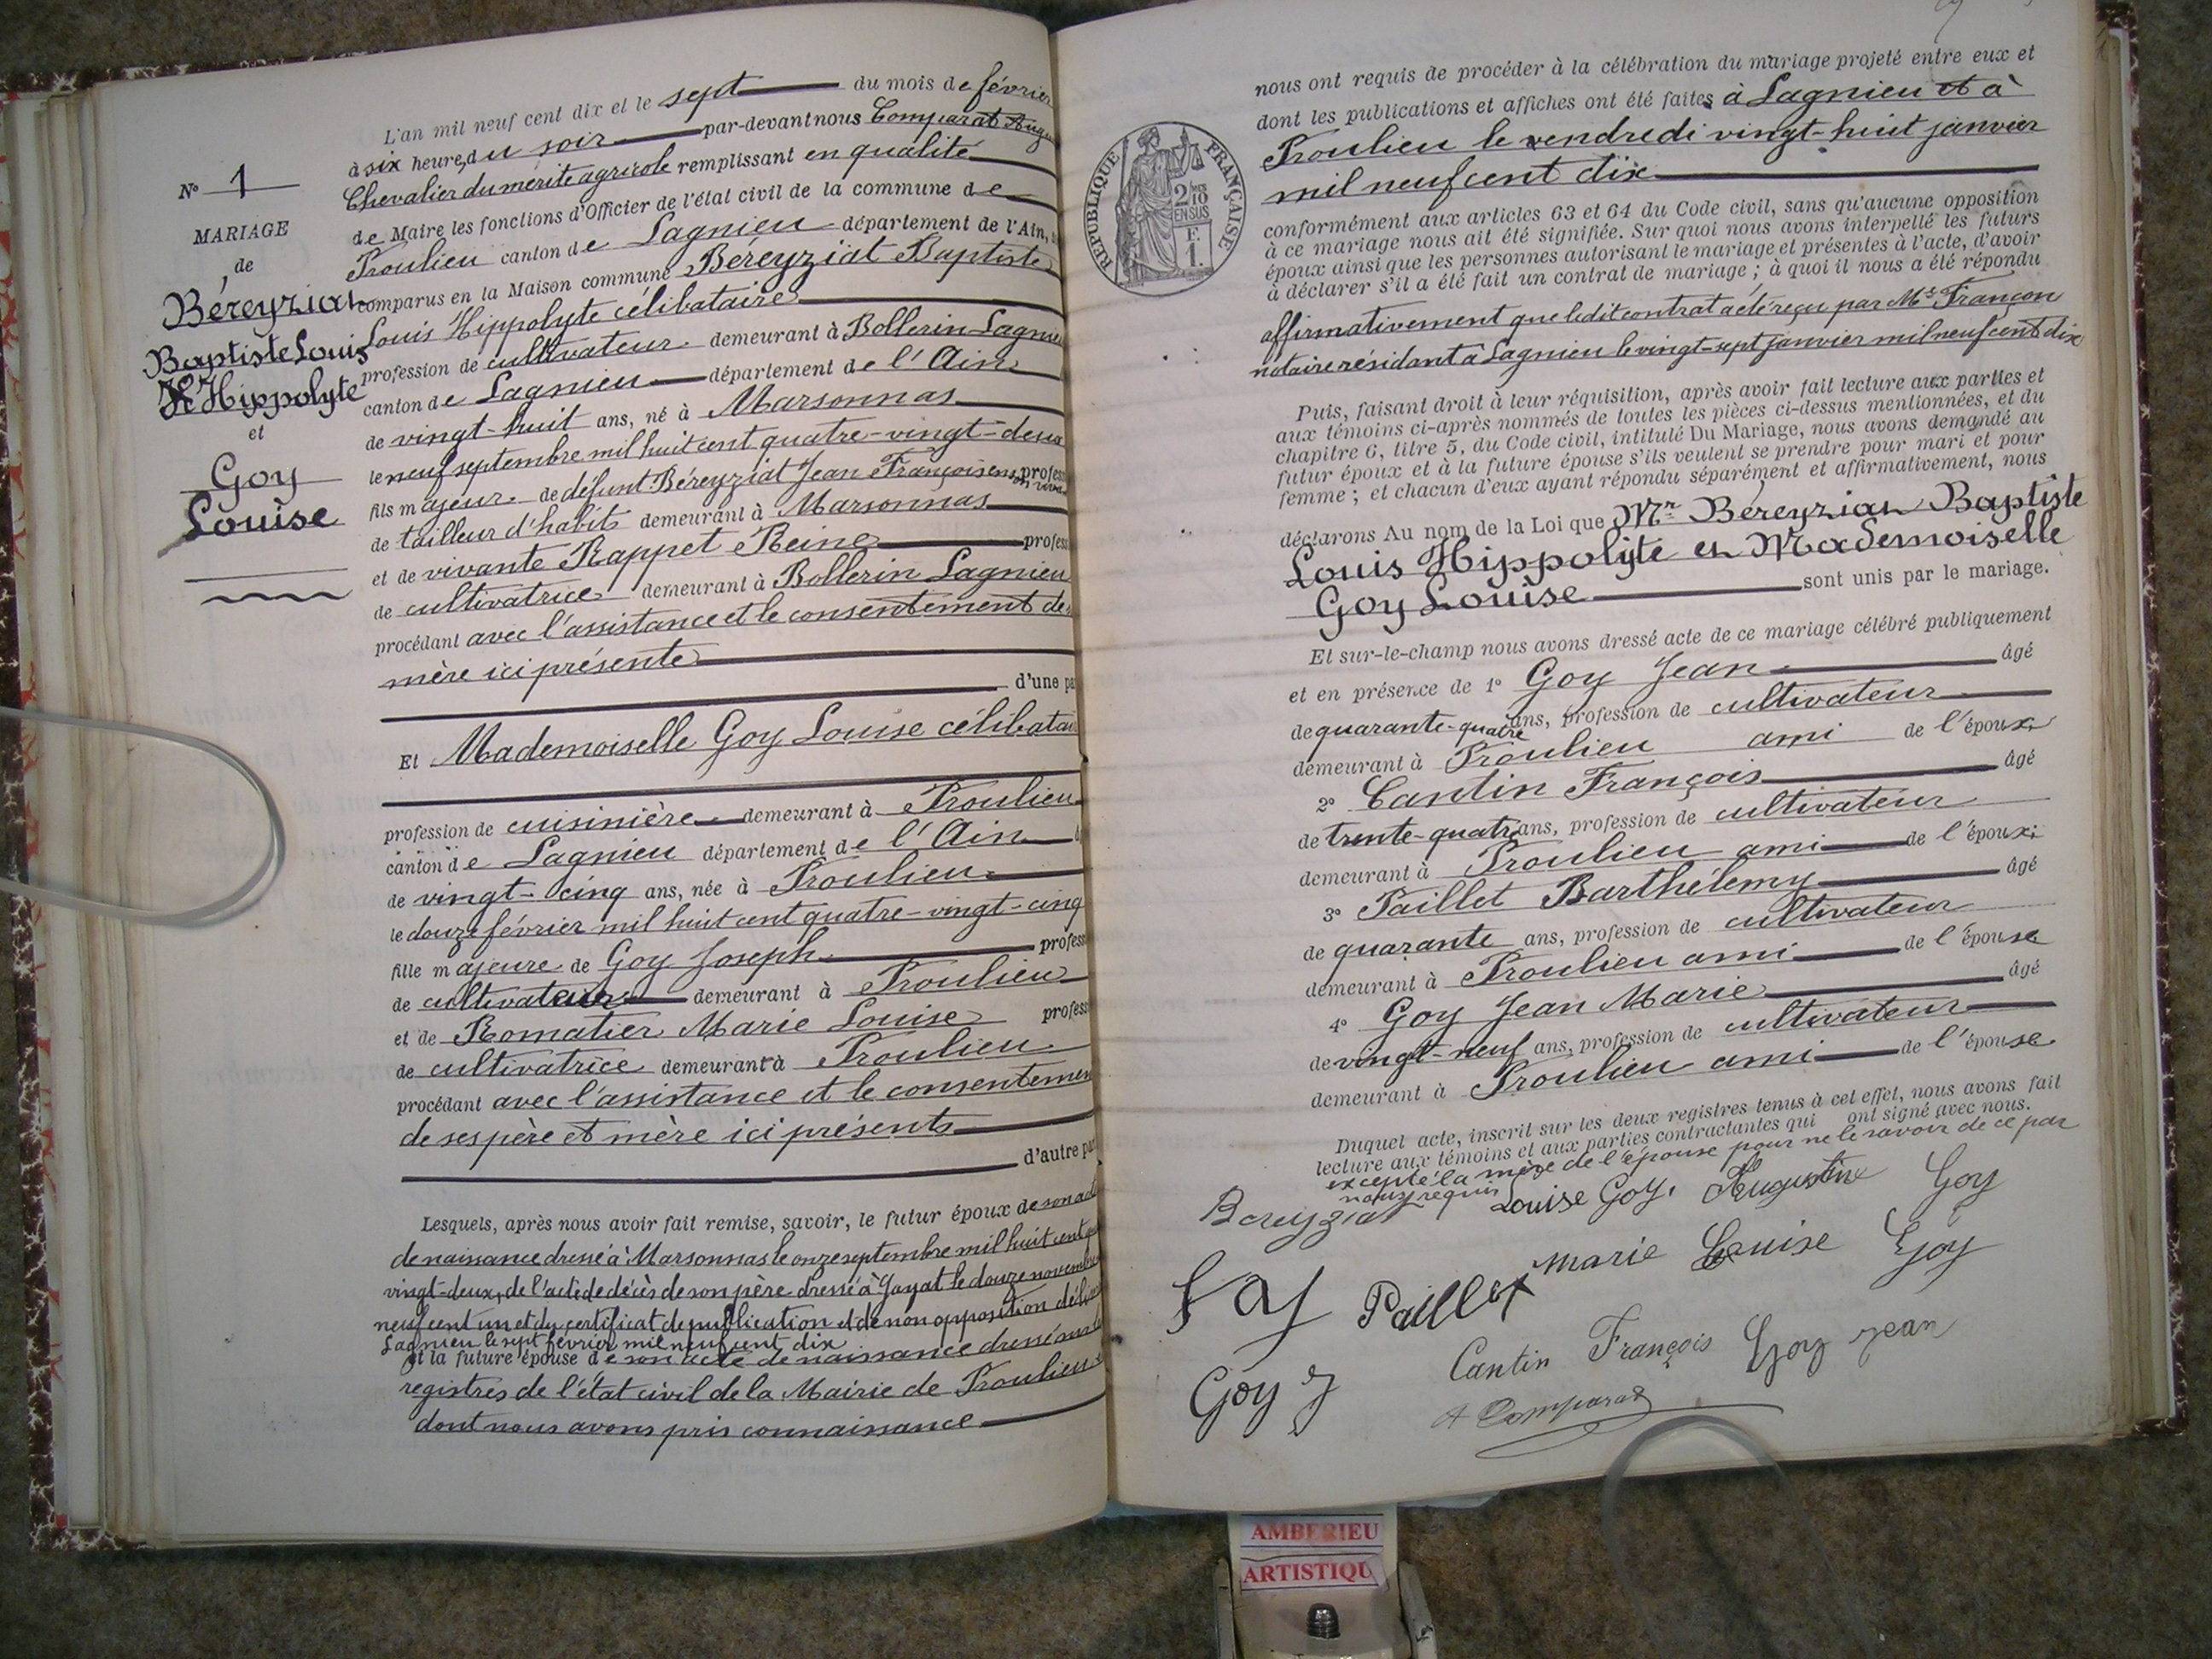 L'an mil neuf cent dix et le sept du mois de février
à six heures du soir par-devant nous Comparat
Chevalier du mérite agricole remplissant en qualité
de Maire les fonctions d'Officier de l'état civil de la commune de
Proulieu canton de Lagnieu département de l'Ain,
comparus en la Maison commune Béreyziat Baptiste
Louis Hippolyte célibataire
profession de cultivateur demeurant à Bollerin Lagnieu
canton de Lagnieu département de l'Ain
de vingt-huit ans, né à Marsonnas
le neuf septembre mil huit cent quatre-vingt-deux
fils majeur de défunt Béreyziat Jean François en son vivant profess
de tailleur d'habits demeurant à Marsonnas
et de vivante Rappet Reine profess
de cultivatrice demeurant à Bollerin Lagnieu
procédant avec l'assistance et le consentement de
mère ici présente
d'une pa
Et Mademoiselle Goy Louise célibatai
profession de cuisinière demeurant à Proulieu
canton de Lagnieu département de l'Ain
de vingt-cinq ans, née à Proulieu
le douze février mil huit cent quatre-vingt-cinq
fille majeure de Goy Joseph profess
de cultivateur demeurant à Proulieu
et de Romatier Marie Louise profess
de cultivatrice demeurant à Proulieu
procédant avec l'assistance et le consentemen
de ses père et mère ici présents
d'autre par
Lesquels, après nous avoir fait remise, savoir, le futur époux de son
de naissance dressé à Marsonnas le onze septembre mil huit cent
vingt-deux, de l'acte de décès de son père dressé à Jayat le douze novembre
neuf cent un et du certificat de publication et de non opposition
Lagnieu le sept février mil neuf cent dix
et la future épouse de son acte de naissance dressé
registres de l'état civil de la Mairie de Proulieu
dont nous avons pris connaissance
N° 1
MARIAGE
de
Béreyziat
Baptiste Louis
Hippolyte
et
Goy
Louise
nous ont requis de procéder à la célébration du mariage projeté entre eux et
dont les publications et affiches ont été faites à Lagnieu et à
Proulieu le vendredi vingt-huit janvier
mil neuf cent dix
RÉPUBLIQUE FRANÇAISE
2/10
EN SUS
F.
1.
conformément aux articles 63 et 64 du Code civil, sans qu'aucune opposition
à ce mariage nous ait été signifiée. Sur quoi nous avons interpellé les futurs
époux ainsi que les personnes autorisant le mariage et présentes à l'acte, d'avoir
à déclarer s'il a été fait un contrat de mariage ; à quoi il nous a été répondu
affirmativement que ledit contrat a été reçu par Me Françon
notaire résidant à Lagnieu le vingt-sept janvier mil neuf cent dix
Puis, faisant droit à leur réquisition, après avoir fait lecture aux parties et
aux témoins ci-après nommés de toutes les pièces ci-dessus mentionnées, et du
chapitre 6, titre 5, du Code civil, intitulé Du Mariage, nous avons demandé au
futur époux et à la future épouse s'ils veulent se prendre pour mari et pour
femme ; et chacun d'eux ayant répondu séparément et affirmativement, nous
déclarons Au nom de la Loi que Mr Béreyziat Baptiste
Louis Hippolyte et Mademoiselle
Goy Louise sont unis par le mariage.
Et sur-le-champ nous avons dressé acte de ce mariage célébré publiquement
et en présence de 1° Goy Jean âgé
de quarante-quatre ans, profession de cultivateur
demeurant à Proulieu ami de l'époux
2° Cantin François âgé
de trente-quatre ans, profession de cultivateur
demeurant à Proulieu ami de l'époux;
3° Paillet Barthélemy âgé
de quarante ans, profession de cultivateur
demeurant à Proulieu ami de l'épouse
4° Goy Jean Marie âgé
de vingt-neuf ans, profession de cultivateur
demeurant à Proulieu ami de l'épouse
Duquel acte, inscrit sur les deux registres tenus à cet effet, nous avons fait
lecture aux témoins et aux parties contractantes qui ont signé avec nous.
excepté la mère de l'épouse pour ne le savoir de ce par
nous requis
Bereyziat Louise Goy. Augustine Goy
Marie Louise Goy
Paillet
Cantin François Goy Jean
Goy J
A Comparat
AMBERIEU
ARTISTIQU